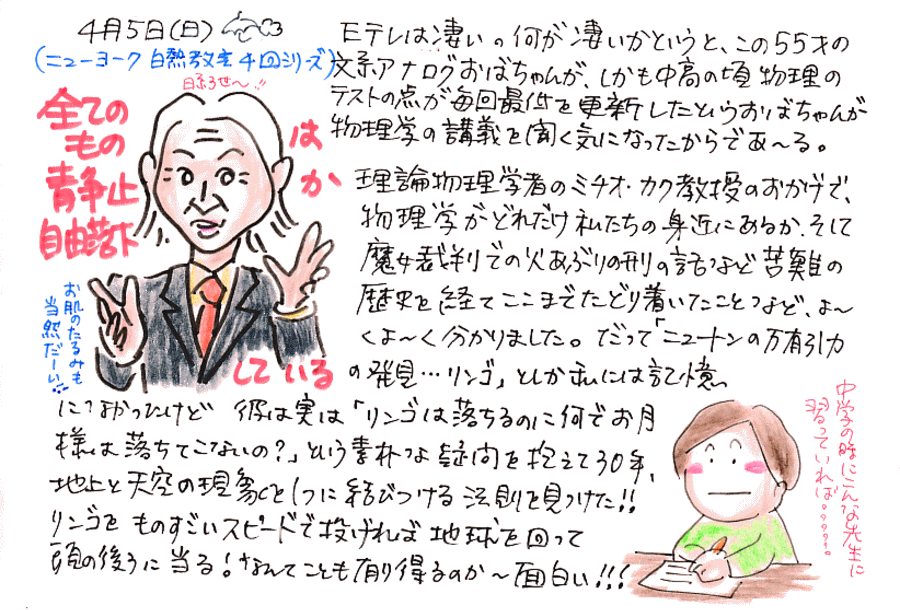 4月5日(日)
(ニューヨーク白熱教室4回シリーズ)
全ての
もの
は
静止
か
自由落下
している
お肌のたるみも
当然だーい!!
Eテレは凄い。何が凄いかというと、この55才の
文系アナログおばちゃんが、しかも中高の頃物理の
テストの点が毎回最低を更新したというおばちゃんが
物理学の講義を聞く気になったからであ〜る。
理論物理学者のミチオ・カク教授のおかげで、
物理学がどれだけ私たちの身近にあるか、そして
魔女裁判での火あぶりの刑の話など苦難の
歴史を経てここまでたどり着いたことなど、よ〜
くよ〜く分かりました。だって「ニュートンの万有引力
の発見…リンゴ」としか私には記憶
になかったけど 彼は実は「リンゴは落ちるのに何でお月
様は落ちてこないの?」という素朴な疑問を抱えて30年、
地上と天空の現象を1つに結びつける法則を見つけた!!
リンゴをものすごいスピードで投げれば地球を回って
頭の後ろに当る!なんてことも有り得るのか〜面白い!!!
中学の時にこんな先生に
習っていれば。。。。。